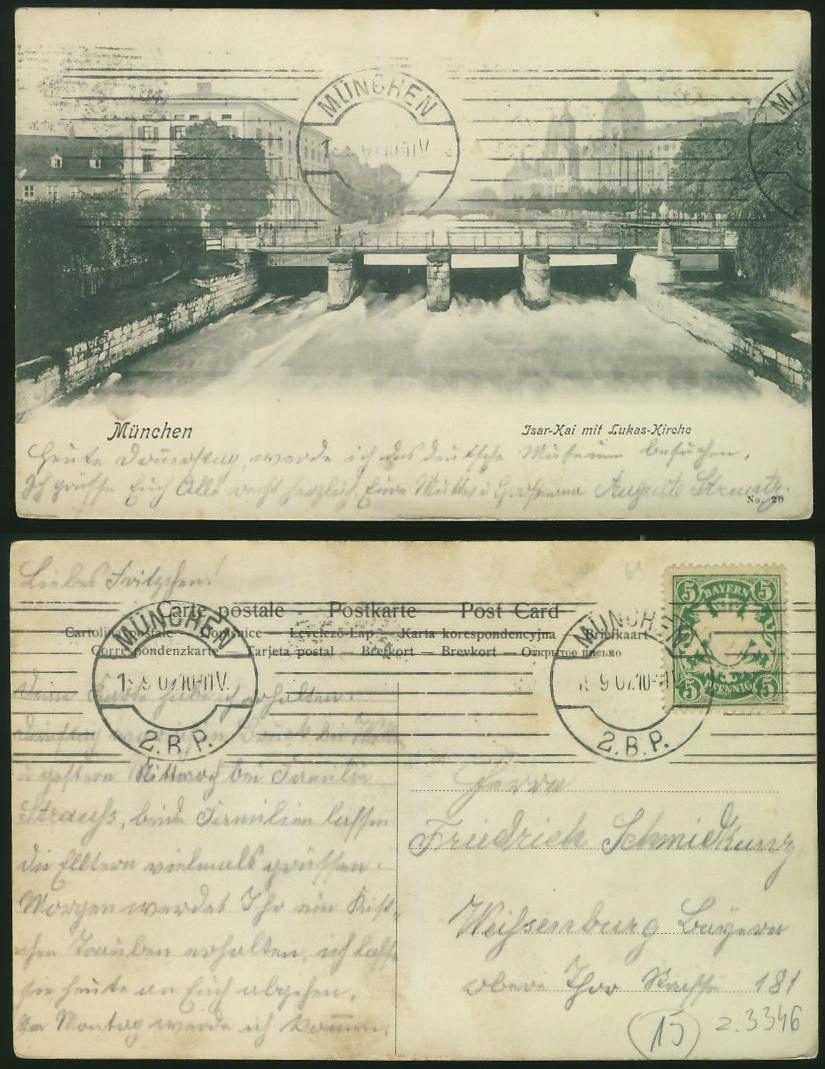 MÜNCHEN
MÜN
München
Isar-Kai mit Lukas-Kirche
Heute Donnerstag, werde ich das deutsche Museum besuchen.
Ich grüsse Euch Alle recht herzlich, Eure Mutter u Grossmama Auguste
No. 20
Liebes Fritzchen!
Carte postale Postkarte Post Card
Cartolina postale Dopisnice Levelező-Lap — Karta korespondencyjna Briefkaart
Correspondenzkarte Tarjeta postal — Brefkort — Brevkort — Открытое письмо
MÜNCHEN
9 07.10-11V.
2.B.P.
MÜNCHEN
9 07.10-11V
2.B.P.
BAYERN
5 5
5 5
PFENNIG
Karte habe ich erhalten.
Dienstag bei
u gestern Mittwoch bei Familie
Strauss, beide Familien lassen
die Elltern vielmals grüssen.
Morgen werdet Ihr ein Kist-
chen Trauben erhalten, ich lasse
sie heute an Euch abgehen.
Am Montag werde ich kommen.
Herrn
Friedrich Schmidkunz
Weissenburg Bayern
obere Thor Strasse 181
15 2.3346